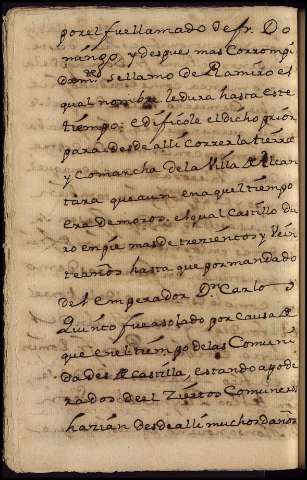 por el fue llamado de fr. Do
mingo, y despues mas corrompi
do se llamo de Ramiro el
qual nombre le dura hasta este
tiempo: edificole el dicho prior
para desde alli correr la tierra
y comarcha de la Villa de Alcan
tara que aun en aquel tiempo
era de moros. el qual castillo du
ro en pie mas de trezientos y vein
te años hasta que por mandado
del emperador Dn Carlo
Quinto fue asolado por causa de
que en el tiempo de las Comuni
dades de Castilla, estando apode
rados de el Ziertos Comuneros
hazian desde alli muchos daños